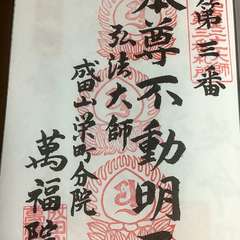 第三番
本尊不動明王
弘法大師
成田山栄町分院
萬福院